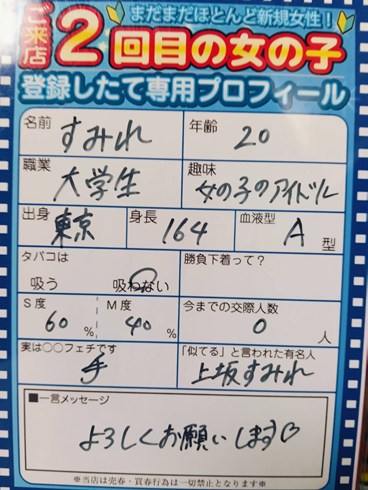 ご来店
まだまだほとんど新規女性!
2回目の女の子
登録したて専用プロフィール
名前 すみれ 年齢 20
職業 大学生 趣味 女の子のアイドル
出身 東京 身長 164 血液型 A 型
タバコは 勝負下着って?
吸う 吸わない
S度 60 % M度 40 % 今までの交際人数 0 人
実は○○フェチです 「似てる」と言われた有名人
手 上坂すみれ
■一言メッセージ
よろしくお願いします♡
※当店は売春・買春行為は一切禁止となります※